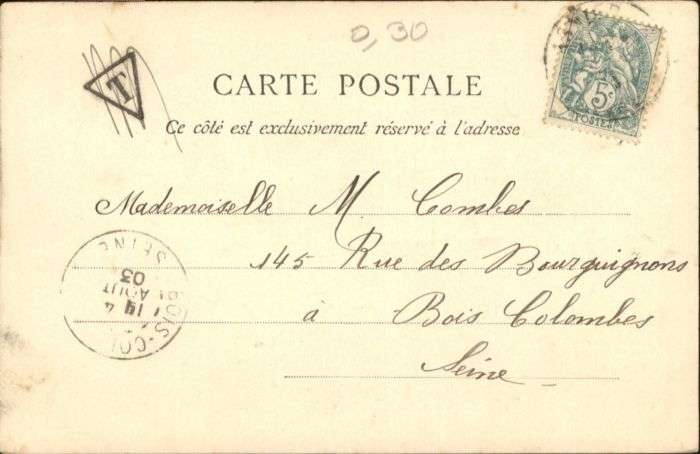 0,30
T
5c
POSTES
CARTE POSTALE
Ce côté est exclusivement réservé à l'adresse
Mademoiselle M. Combes
145 Rue des Bourguignons
à Bois Colombes
Seine
BOIS-COL
SEINE
AOUT
03